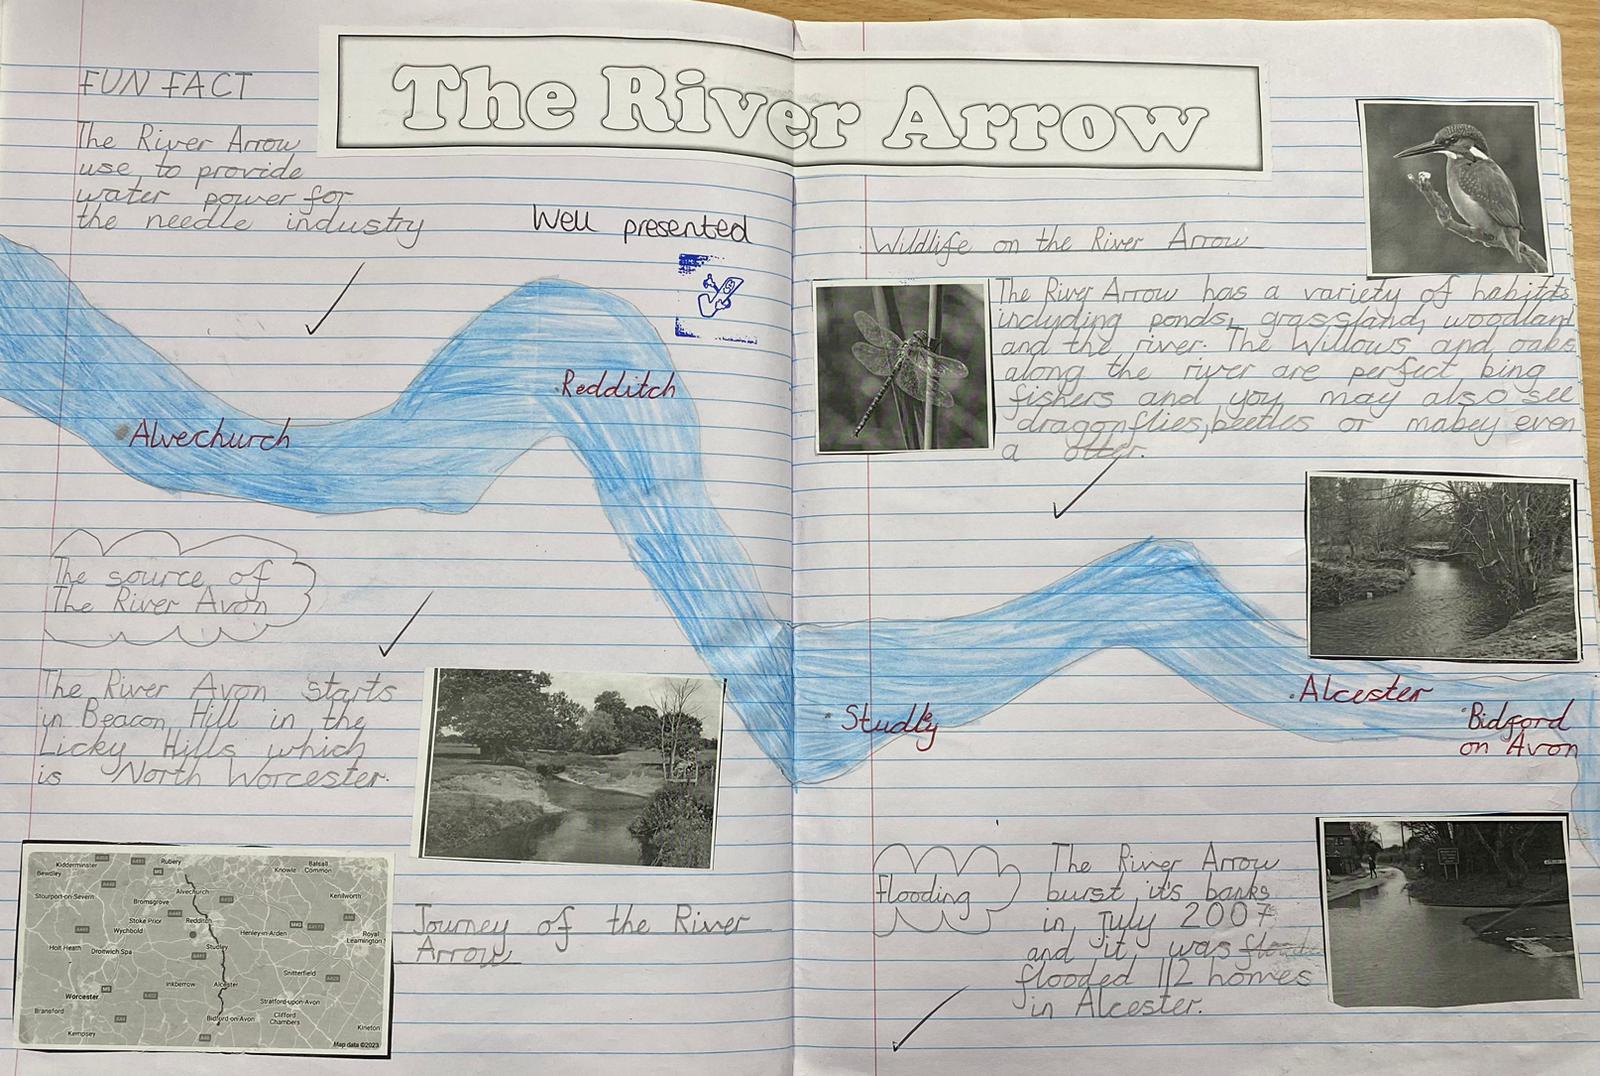 The River Arrow
FUN FACT
The River Arrow
use to provide
water power for
the needle industry
Well presented
Redditch
Alvechurch
The source of
The River Avon
The River Avon starts
in Beacon Hill in the
Licky Hills which
is North Worcester.
Kidderminster
Rubery
Bewdley
Knowle
Balsall Common
Alvechurch
Stourport-on-Severn
Bromsgrove
Kenilworth
Stoke Prior
Redditch
Wychbold
Henley-in-Arden
Royal Leamington
Holt Heath
Droitwich Spa
Studley
Snitterfield
Inkberrow
Alcester
Worcester
Stratford-upon-Avon
Bransford
Bidford-on-Avon
Clifford Chambers
Kempsey
Kineton
Map data ©2023
Journey of the River
Arrow
Wildlife on the River Arrow
The River Arrow has a variety of habitts
including ponds, grassland, woodland
and the river. The Willows and oaks
along the river are perfect bing
fishers and you may also see
dragonflies, beetles or mabey even
a otter.
Studly
Alcester
Bidford
on Avon
flooding
The River Arrow
burst it's banks
in july 2007
and it was
flooded 112 homes
in Alcester.